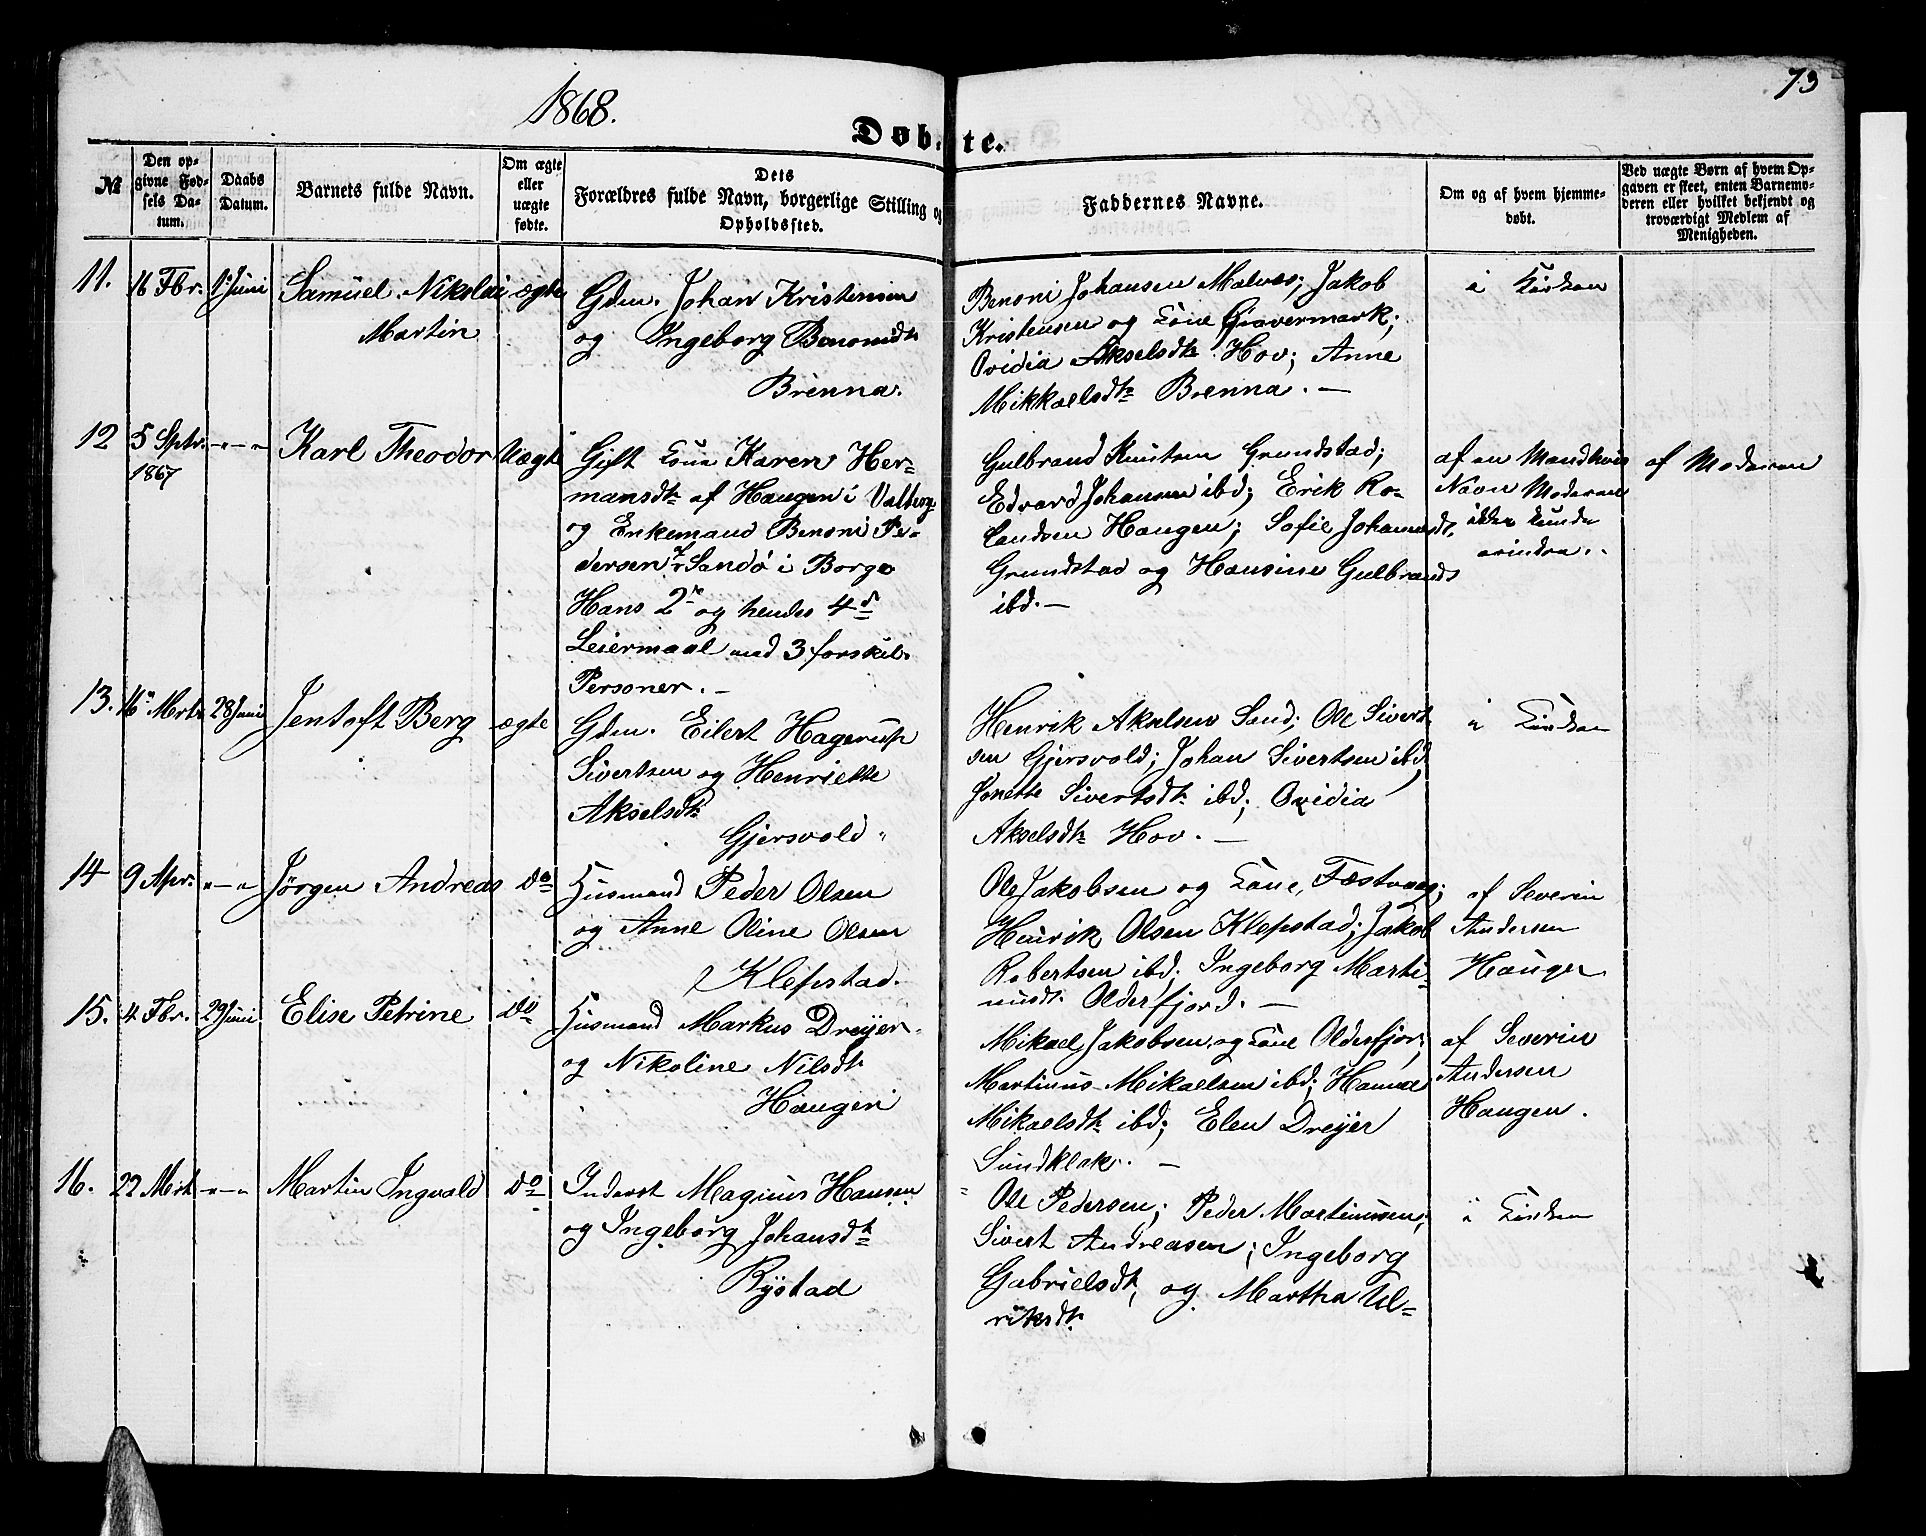 73
1868.
Døbte.
№
Den opgivne Fødsels Datum.
Daabs Datum.
Barnets fulde Navn.
Om ægte eller uægte fødte.
Dets Forældres fulde Navn, borgerlige Stilling og Opholdssted.
Faddernes Navne.
Om og af hvem hjemmedøbt.
Ved uægte Børn af hvem Opgaven er skeet, enten Barnemoderen eller hvilket bekjendt og troværdigt Medlem af Menigheden.
11. 16 Fbr. 1 Juni Samuel Nikolai ægte
Martin
Gdm. Johan Kristensen
og Ingeborg Benonidt.
Brenna.
Benoni Johansen Malnes; Jakob
Kristensen og Kone Gravermark;
Ovidia Akselsdt. Hov; Anne
Mikkaelsdt. Brenna. —
i Kirken
12 5 Sptr. — " — Karl Theodor Uægte
1867
Gift Kone Karen Her=
mansdt. af Haugen i Valberg
og Enkemand Benoni Pe=
dersen Sandö i Borge
Hans 2de og hendes 4de
Leiermaal med 3 forskil.
Personer. —
Gulbrand Knutsen Grundstad;
Edvard Johansen ibd; Erik Ro=
landsen Haugen; Sofie Johansdt.
Grundstad og Hansine Gulbrands
ibd. —
af en Mand hvis
Navn Moderen
ikke kunde
erindre..
af Moderen
13. 16 Mrts 28 Juni Jentoft Berg ægte
Gdm. Eilert Hagerup
Sivertsen og Henriette
Akselsdt.
Gjersvold "
Henrik Akselsen Sand; Ole Sivert
sen Gjersvold; Johan Sivertsen ibd;
Jonette Sivertsdt. ibd; Ovidia
Akselsdt. Hov. —
i Kirken
14 9 Apr. " — " Jörgen Andreas do
Husmand Peder Olsen
og Anne Oline Olsen
Klepstad.
Ole Jakobsen og Kone, Festvaag;
Henrik Olsen Klepstad; Jakob
Robertsen ibd; Ingeborg Marti=
nusdt. Olderfjord. —
af Severin
Andersen
Haugen
15. 4 Fbr. 29 Juni Elise Petrine do
Husmand Markus Dreyer
og Nikoline Nilsdt.
Haugen
Mikael Jakobsen og Kone Olderfjor;
Martinus Mikaelsen ibd; Hanna
Mikaelsdt. ibd; Elen Dreyer
Sundklak. —
af Severin
Andersen
Haugen.
16. 22 Mrt " — " Martin Ingvald do
Inderst Magnus Hansen
og Ingeborg Johansdt.
Rystad
Ole Pedersen; Peder Martinusen;
Sivert Andreasen; Ingeborg
Gabrielsdt, og Martha Ul=
riksdt.
i Kirken